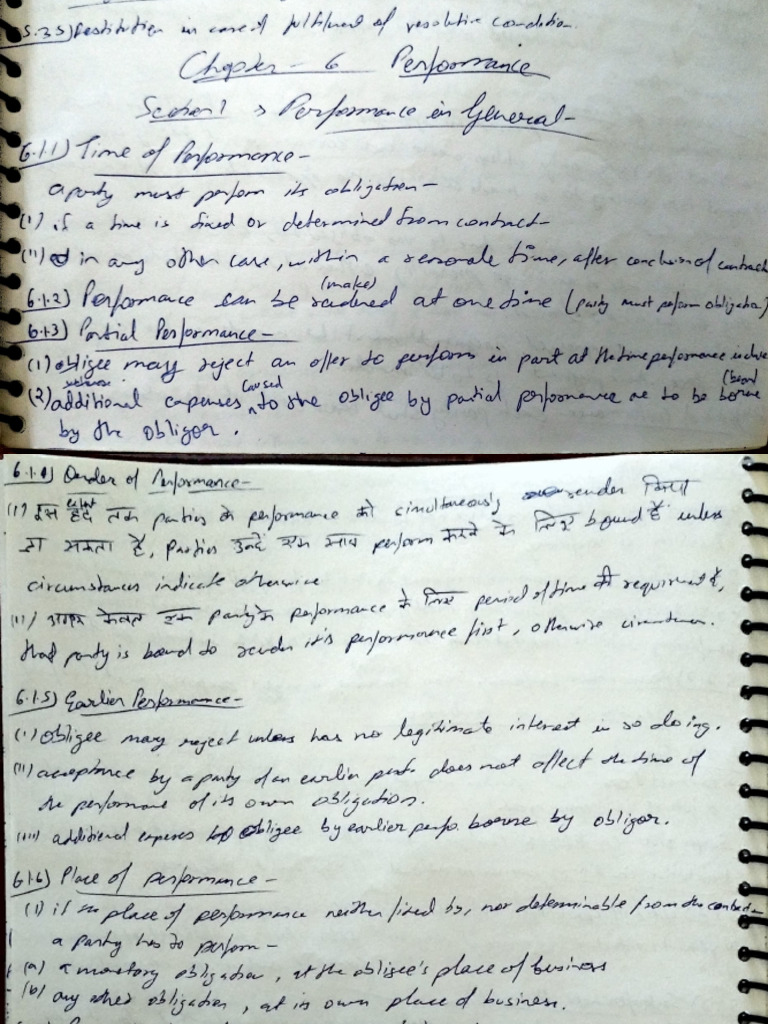 5.3.5) Restitution in case of fulfilment of resolutive condition
Chapter - 6 Performance
Section 1 → Performance in General -
6.1.1) Time of Performance -
a party must perform its obligation -
(i) if a time is fixed or determined from contract
(ii) in any other case, within a reasonale time, after conclusion of contract
(make)
6.1.2) Performance can be rendered at one time (party must perform obligation)
6.1.3) Partial Performance -
(1) obligee may reject an offer to perform in part at the time performance is due
caused (bear)
(2) additional expenses to the obligee by partial performance are to be borne
by the obligor.
6.1.4) Order of Performance -
extent
(i) इस हद तक parties के performance को simultaneously render किया
जा सकता है, Parties उन्हें एक साथ perform करने के लिए bound हैं unless
circumstances indicate otherwise
(ii) अगर केवल एक party के performance के लिए period of time की requirement है,
that party is bound to render it's performance first, otherwise circumstan.
6.1.5) Earlier Performance -
(i) Obligee may reject unless has no legitimate interest in so doing.
(ii) acceptance by a party of an earlier perfo does not affect the time of
the performance of its own obligation.
(iii) additional expenses to obligee by earlier perfo. borne by obligor.
6.1.6) Place of performance -
(i) if the place of performance neither fixed by, nor determinable from the contract
a party has to perform -
(a) a monetary obligation, at the obligee's place of business
(b) any other obligation, at its own place of business.